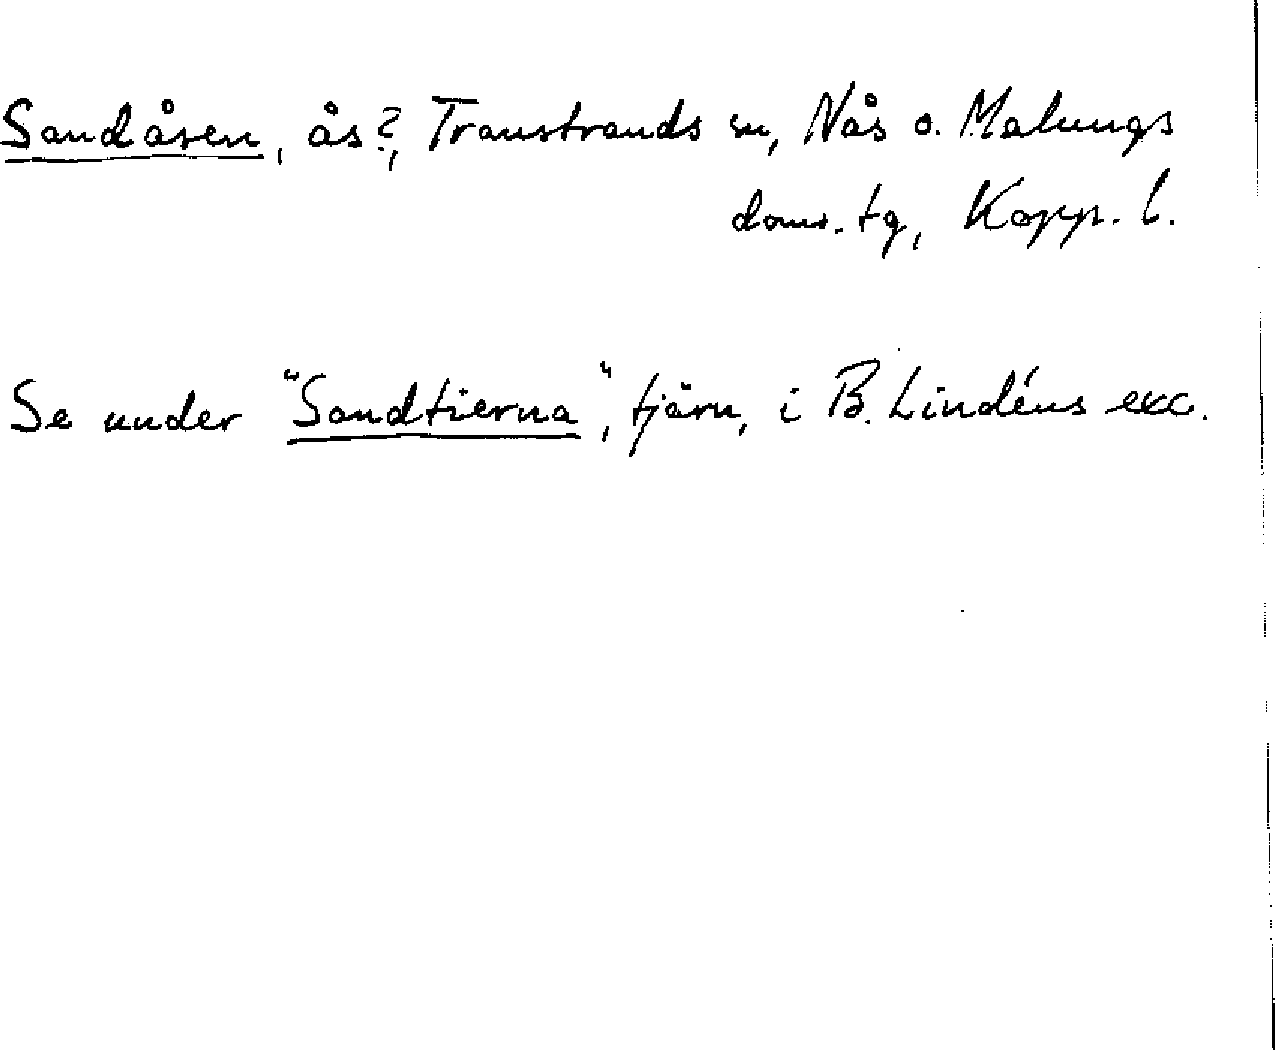 Sandåsen, ås?, Transtrands sn, Nås o. Malungs
doms. tg, Kopp. l.
Se under "Sandtierna", tjärn, i B. Lindéns exc.